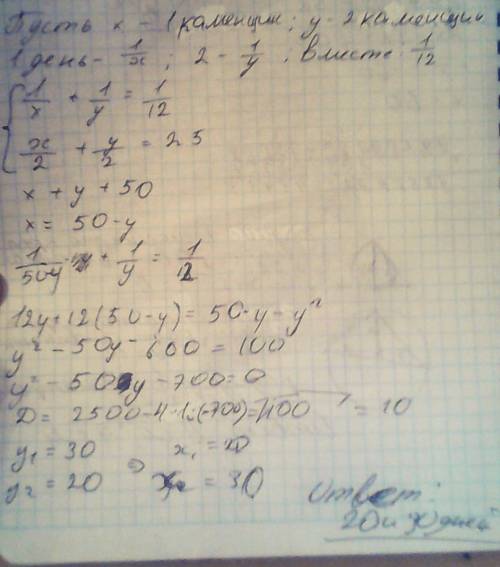 Пусть x - 1 каменщик; y - 2 каменщик
1 день - 1/x ; 2 - 1/y ; вместе: 1/12
{ 1/x + 1/y = 1/12
x/2 + y/2 = 25
x + y + 50
x = 50 - y
1/50-y + 1/y = 1/12
12y + 12(50-y) = 50·y - y²
y² - 50y - 600 = 100
y² - 50y - 700 = 0
D = 2500 - 4·1·(-700) = 100 = 10
y₁ = 30 x₁ = 20
y₂ = 20 ⇒ x₂ = 30
Ответ:
20 и 30 дней